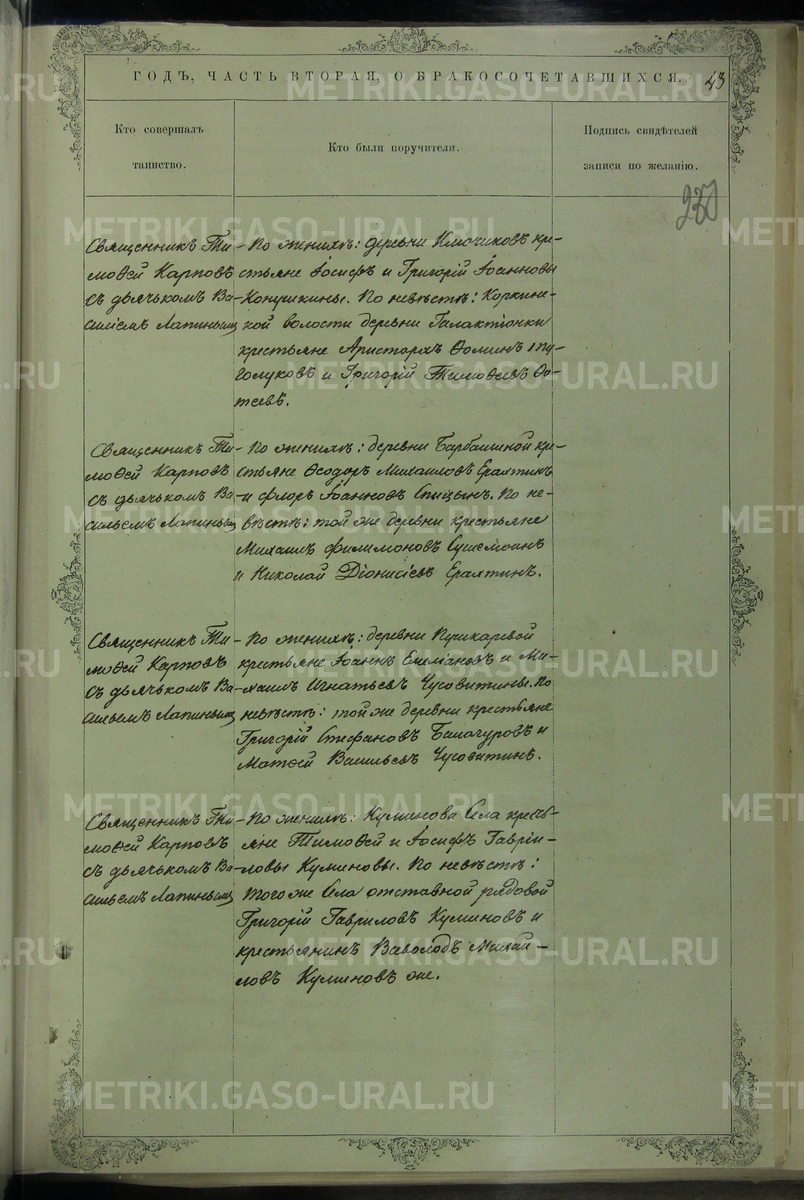 ГОДЪ, ЧАСТЬ ВТОРАЯ, О БРАКОСОЧЕТАВШИХСЯ.
43
Кто совершалъ
таинство.
Кто были поручители.
Подпись свидѣтелей
записи по желанію.
280
Священникъ Ти-
моѳей Карповъ
съ дьячькомъ Ва-
силіемъ Лапинымъ
По женихѣ: деревни Ключиковъ кре-
стьяне Іосифъ и Григорій Іоанновы
Конушкины. По невѣстѣ: Коркине-
кой волости деревни Галактіонки
крестьяне Аристархъ Ѳоминъ
и Григорій Тимоѳеевъ Ѳо-
теевъ.
Священникъ Ти-
моѳей Карповъ
съ дьячькомъ Ва-
сильемъ Лапинымъ
По женихѣ: деревни Барбашиной кре-
стьяне Ѳеодоръ Михаиловъ Ерахтинъ
и Флоръ Іоанновъ Спицынъ. По не-
вѣстѣ: той же деревни крестьяне
Михаилъ Филимоновъ
и Николай Діонисіевъ Ерахтинъ.
Священникъ Ти-
моѳей Карповъ
съ дьячькомъ Ва-
сильемъ Лапинымъ
По женихѣ: деревни Пушкаревой
крестьяне Іоаннъ Емельяновъ и Ми-
хаилъ Игнатьевъ Чусовитины. По
невѣстѣ: той же деревни крестьяне
Григорій Стефановъ Балагуровъ и
Матѳей Васильевъ Чусовитинъ.
Священникъ Ти-
моѳей Карповъ
съ дьячькомъ Ва-
сильемъ Лапинымъ
По женихѣ: Куминова Села кресть-
яне Тимоѳей и Іосифъ Гаврiи-
ловы Куминовы. По невѣстѣ:
того же Села отставной рядовой
Григорій Гавриловъ Куминовъ и
крестьянинъ Михай-
ловъ Куминовъ же.
METRIKI.GASO-URAL.RU